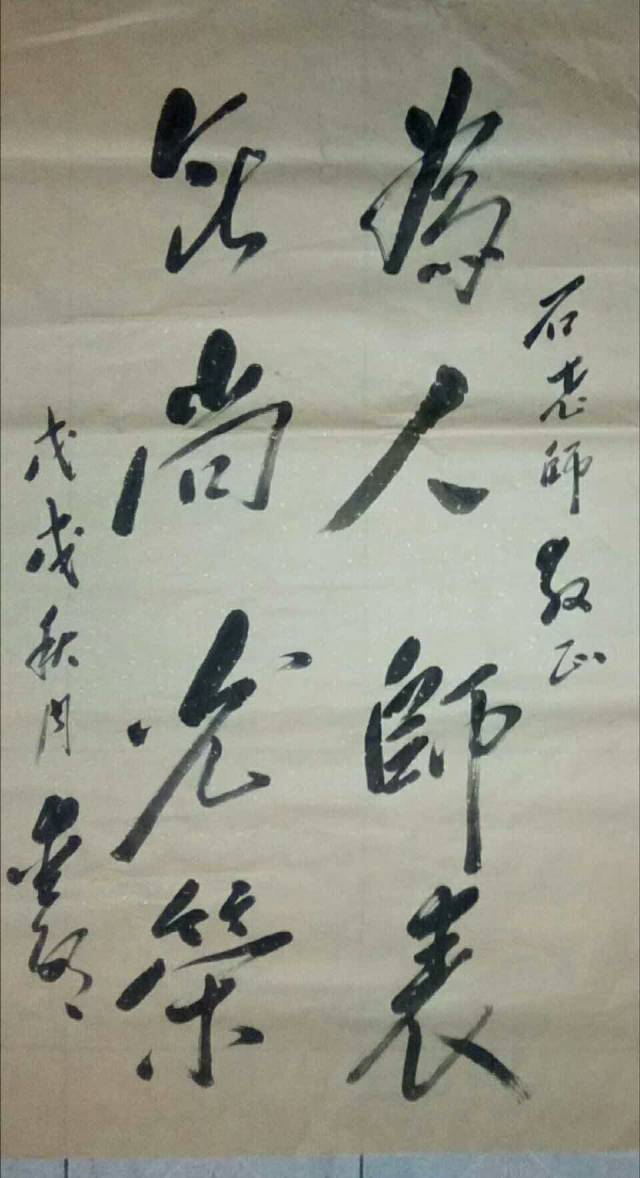 石老師教正
為人師表
無尚光榮
戊戌秋月